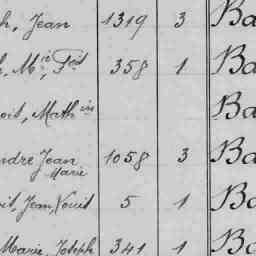 h, Jean 1319 3 Ba
, Mie, Fçs 358 1 Ba
oit, Mathin Ba
ndre Jean Marie 1058 3 Ba
oit, Jean, Louis 5 1 Ba
Marie, Joseph 341 1 Ba